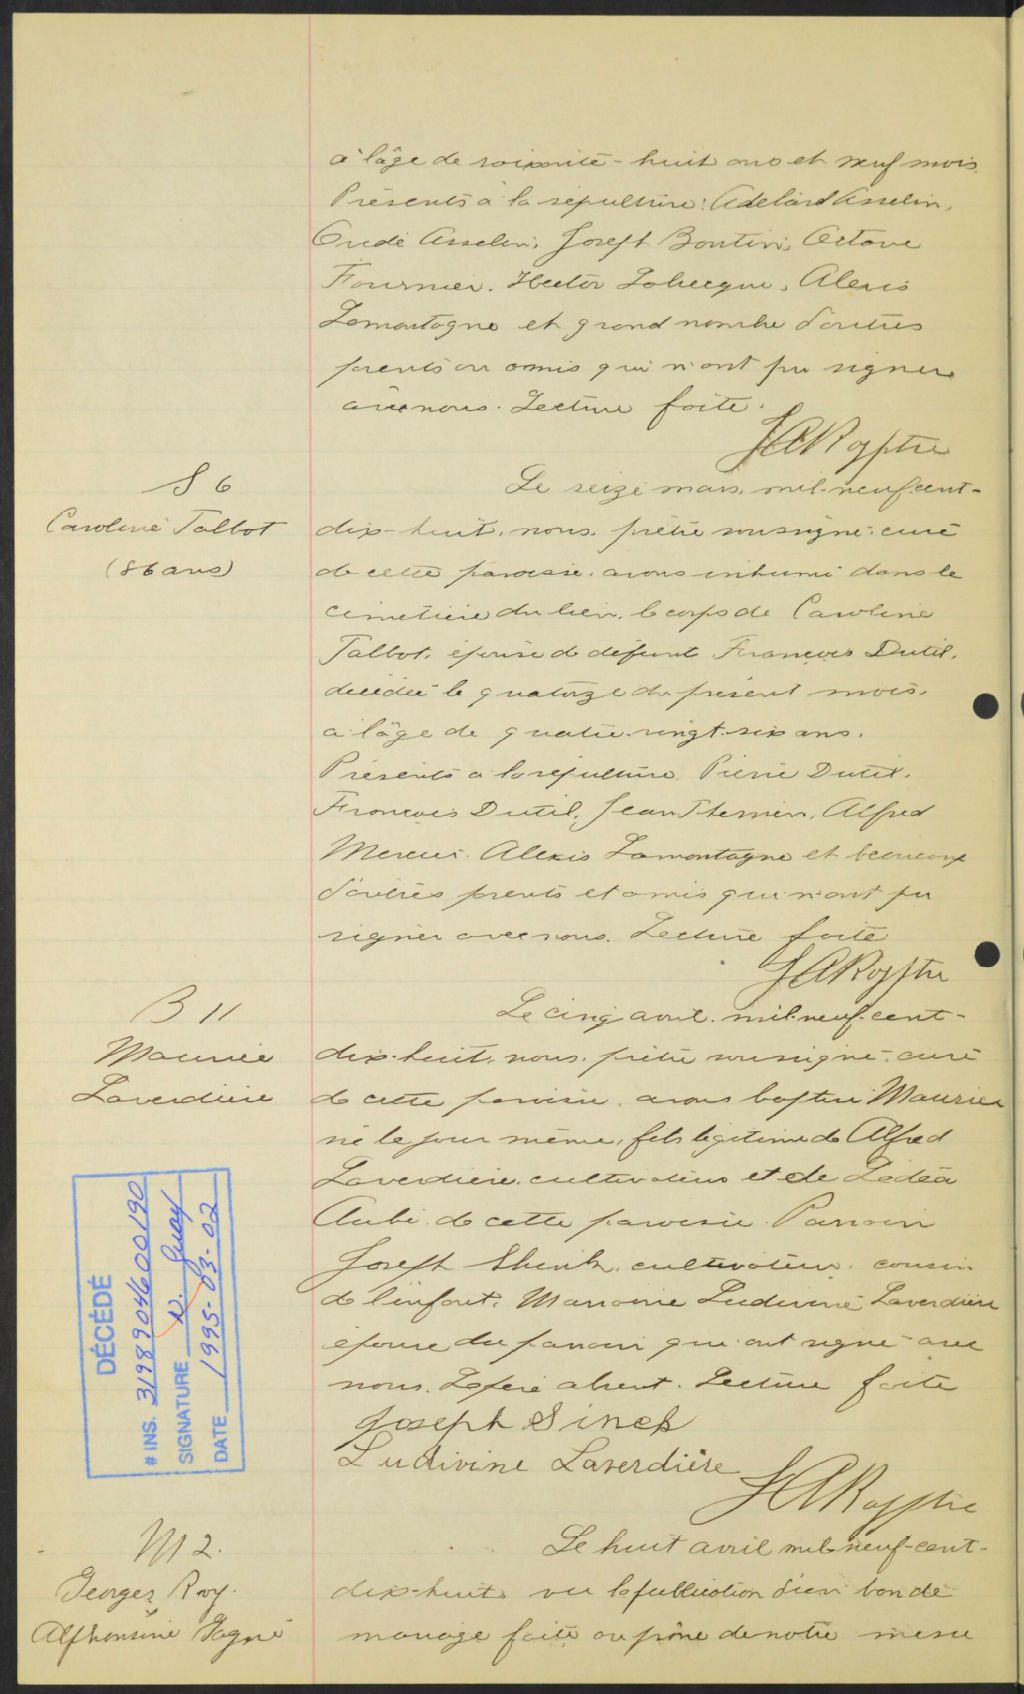 à l'âge de soixante-huit ans et neuf mois.
Présents à la sépulture: Adélard Asselin,
Asselin, Joseph Boutin, Octave
Fournier, Hector, Alexis
Lamontagne et grand nombre d'autres
parents ou amis qui n'ont pu signer
avec nous. Lecture faite.
JARoy ptre
S 6
Caroline Talbot
(86 ans)
Le seize mars, mil-neuf-cent-
dix-huit, nous, prêtre soussigné, curé
de cette paroisse, avons inhumé dans le
cimetière du lieu, le corps de Caroline
Talbot, épouse de défunt François Dutil,
décédée le quatorze du présent mois,
à l'âge de quatre-vingt-six ans.
Présents à la sépulture, Pierre Dutil,
François Dutil, Jean Therrien, Alfred
Mercier, Alexis Lamontagne et beaucoup
d'autres parents et amis qui n'ont pu
signer avec nous. Lecture faite
JARoy ptre
B 11
Maurice
Laverdière
Le cinq avril, mil-neuf-cent-
dix-huit, nous, prêtre soussigné, curé
de cette paroisse, avons baptisé Maurice
né le jour même, fils légitime de Alfred
Laverdière, cultivateur et de Lédéa
Aubé, de cette paroisse. Parrain
Joseph, cultivateur, cousin
de l'enfant, Marraine Ludivine Laverdière
épouse du parrain qui ont signé avec
nous. Le père absent. Lecture faite
Joseph Sinck
Ludivine Laverdière
JARoy ptre
DÉCÉDÉ
# INS. 3198904600190
SIGNATURE N. Guay
DATE 1995-03-02
M 2.
Georges Roy
Alphonsine Gagné
Le huit avril mil-neuf-cent-
dix-huit, vu la publication d'un ban de
mariage faite au prône de notre messe